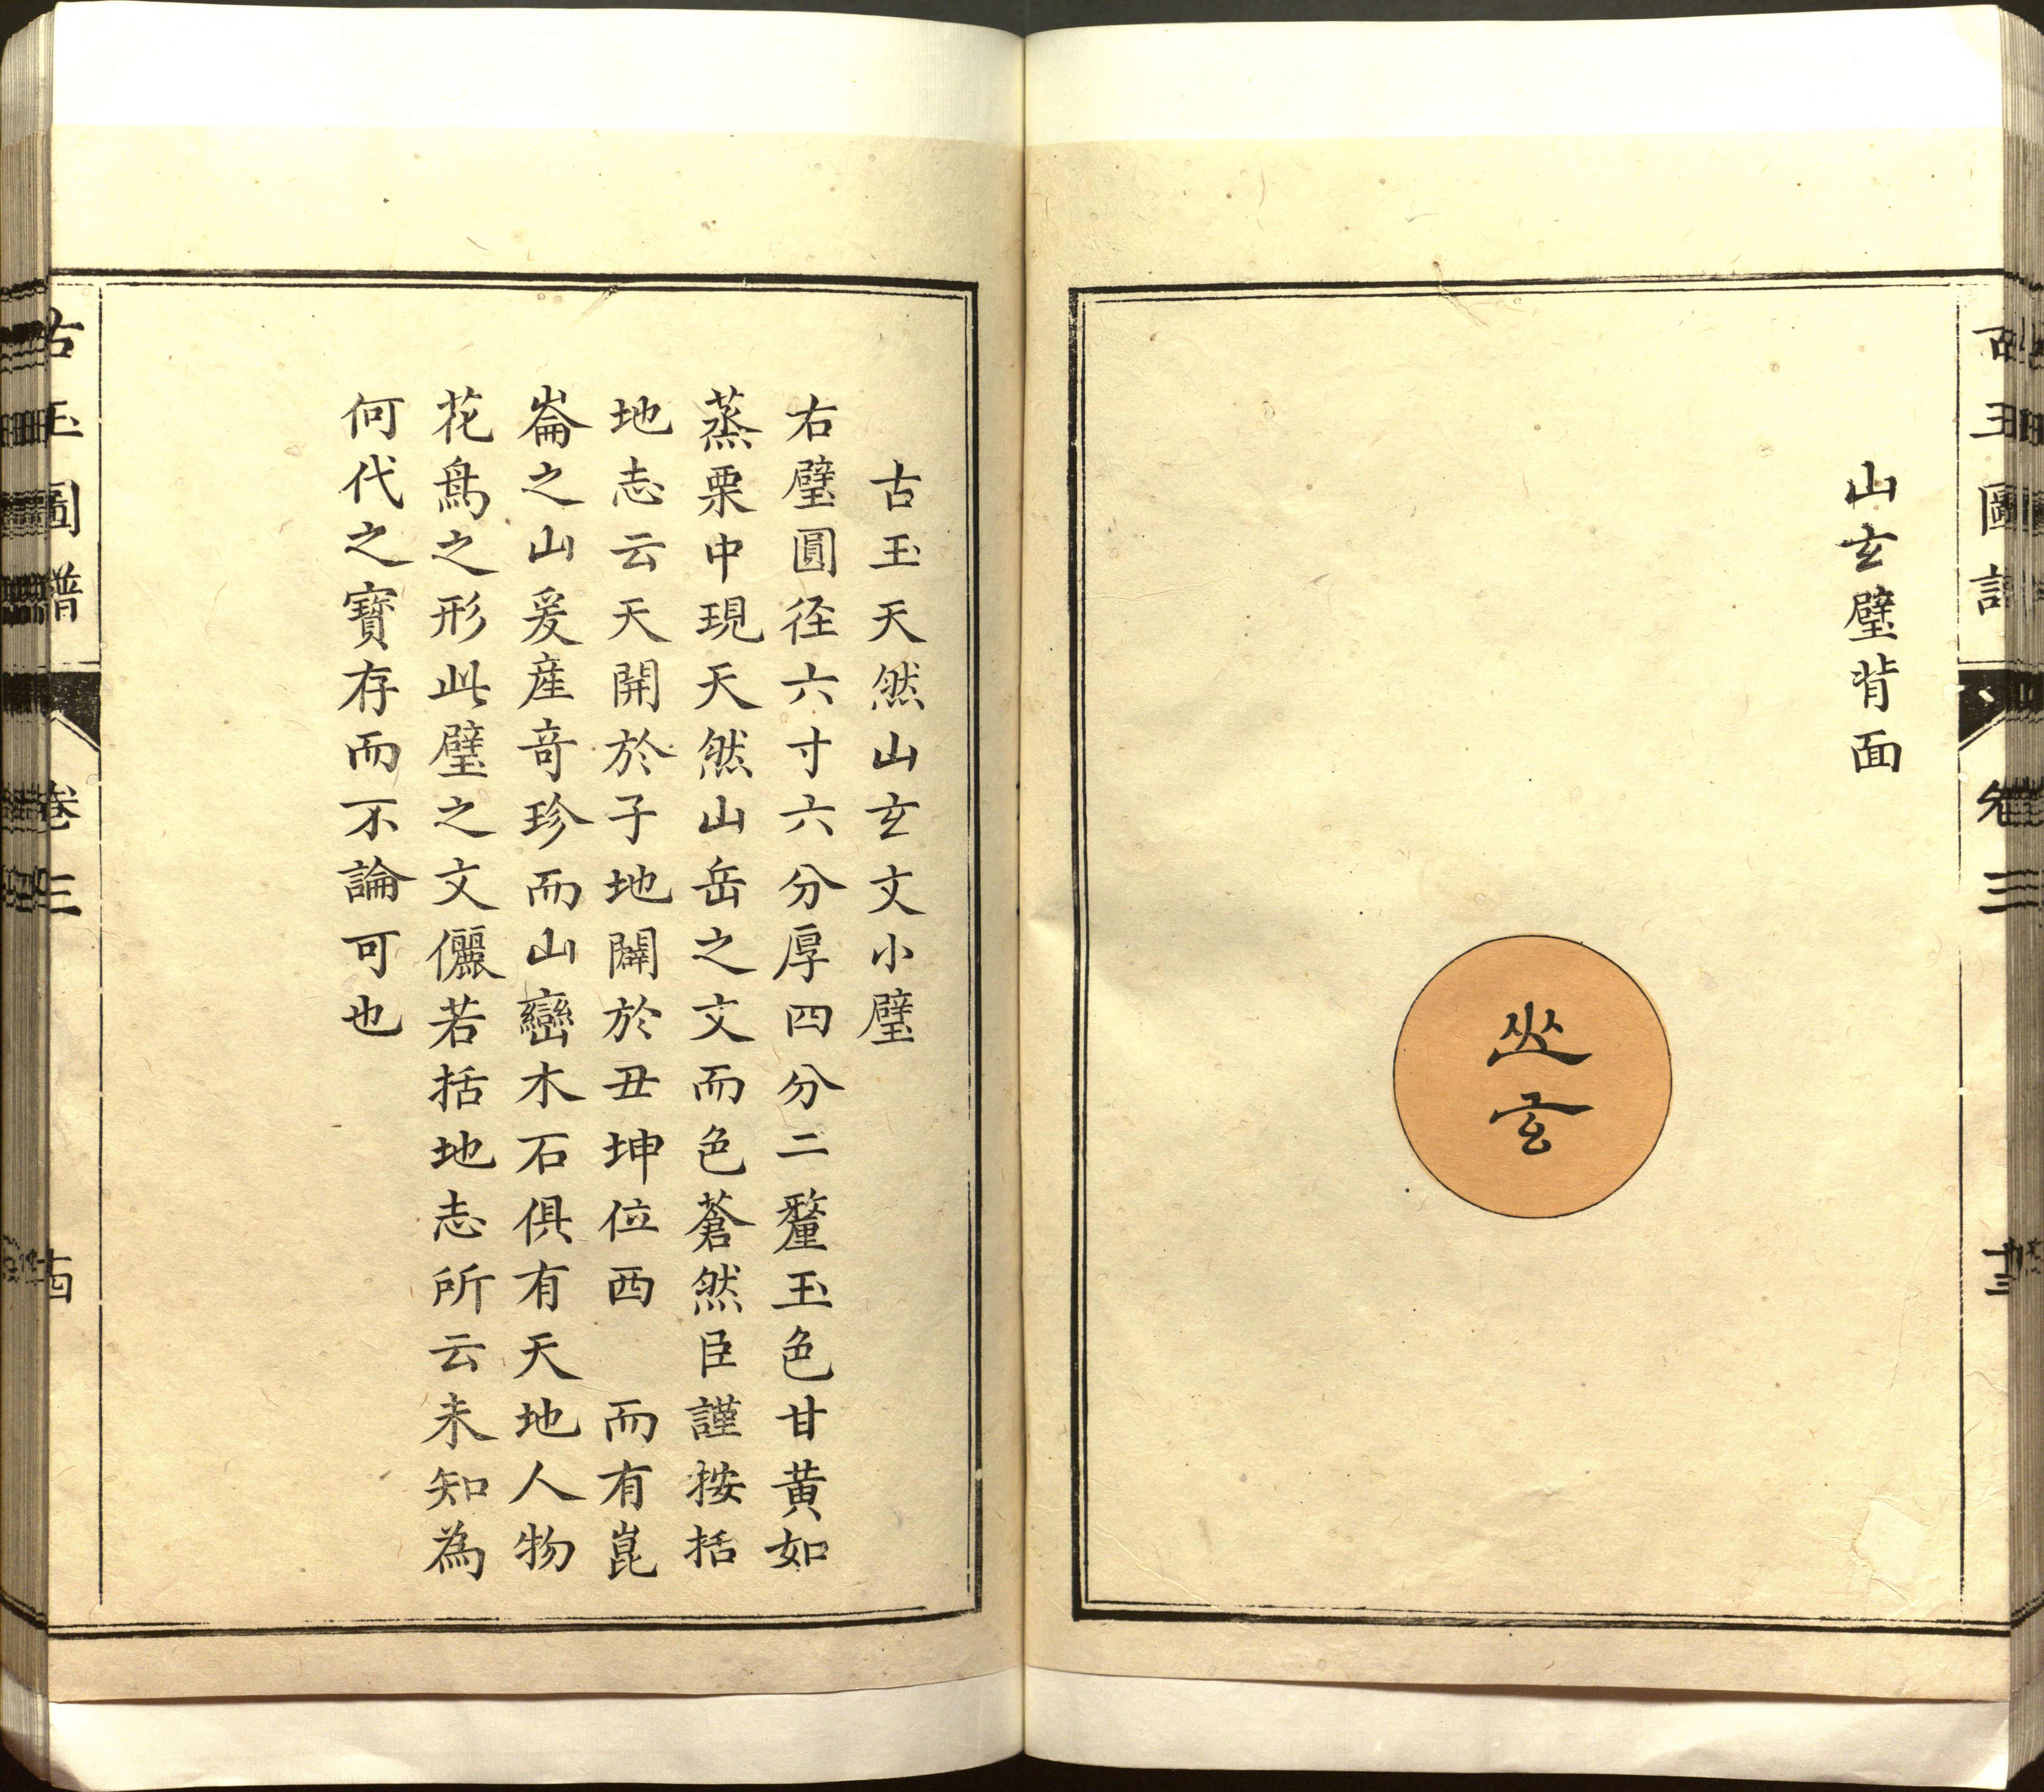 古玉圖譜 卷三 十三
山玄璧背面
山玄
古玉天然山玄文小璧
右璧圓径六寸六分厚四分二釐玉色甘黄如
蒸栗中現天然山岳之文而色蒼然臣謹按括
地志云天開於子地闢於丑坤位西 而有崑
崙之山爰産竒珍而山巒木石俱有天地人物
花鳥之形此璧之文儷若括地志所云未知為
何代之寶存而不論可也
古玉圖譜 卷三 十四